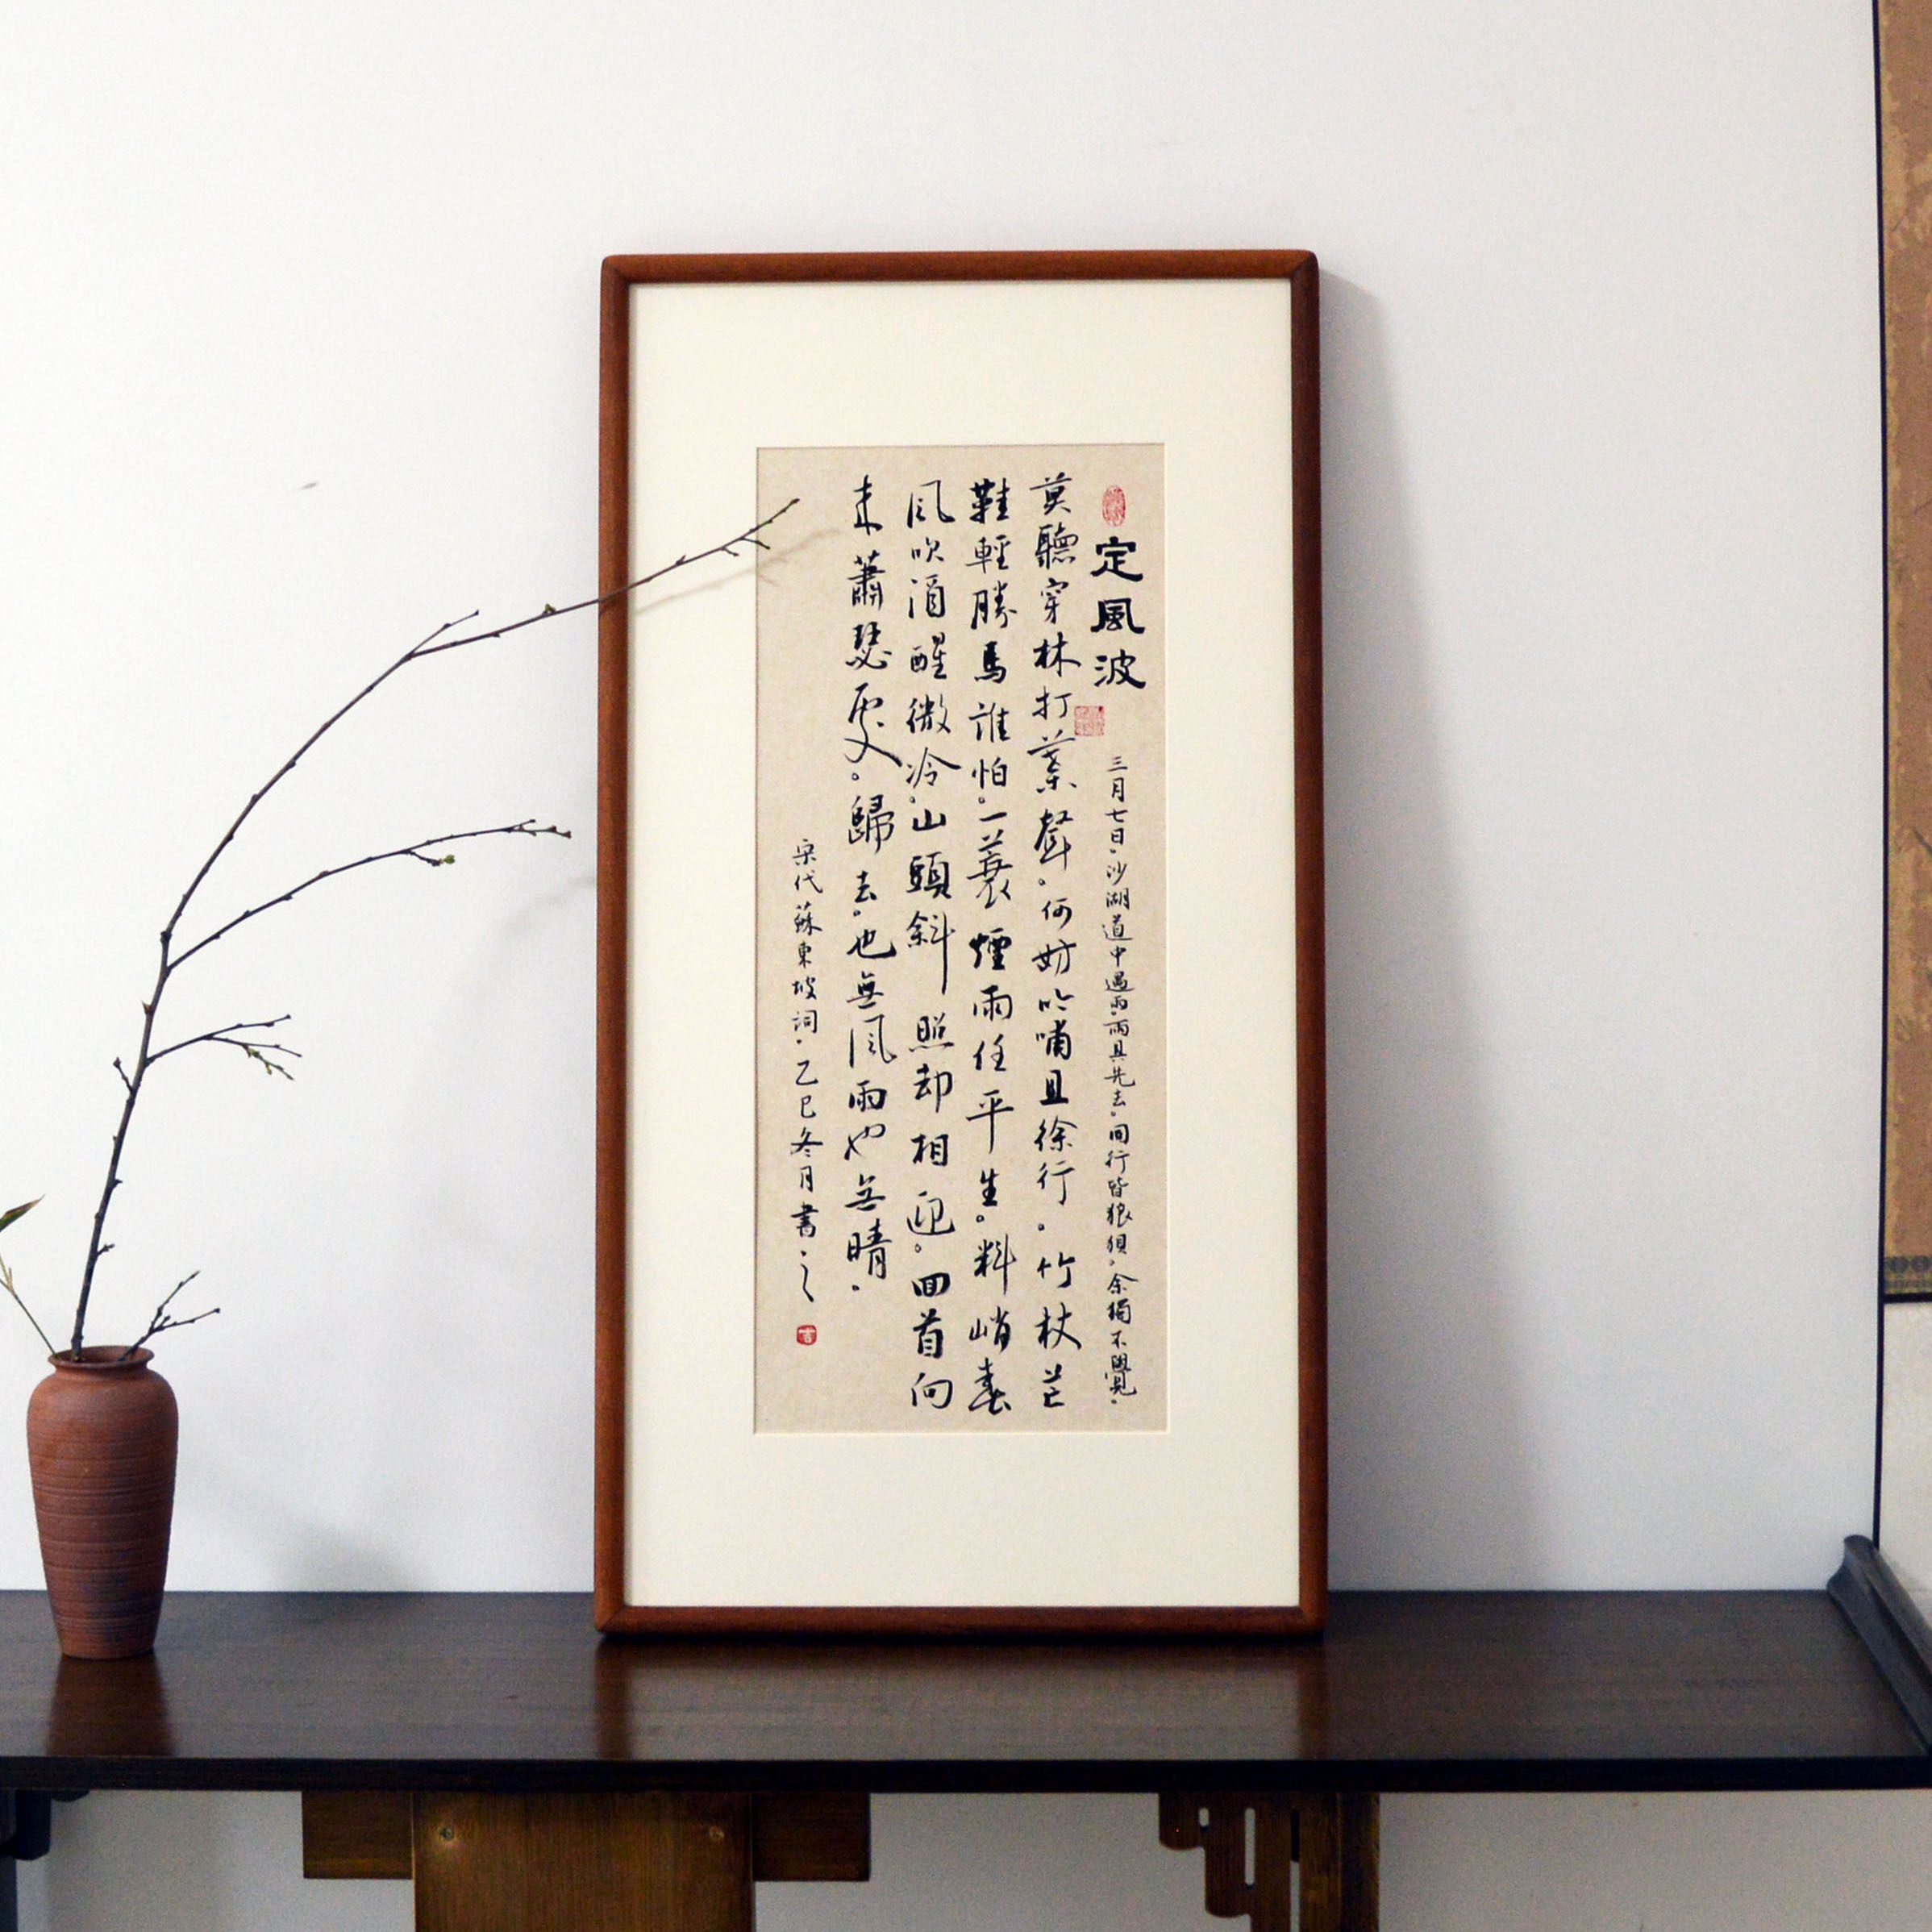 定風波 三月七日。沙湖道中遇雨。雨具先去。同行皆狼狽。余獨不覺。
莫聽穿林打葉聲。何妨吟嘯且徐行。竹杖芒
鞋輕勝馬誰怕。一蓑煙雨任平生。料峭春
風吹酒醒微冷。山頭斜照却相迎。回首向
来蕭瑟處。歸去。也無風雨也無晴。
宋代蘇東坡詞。乙巳冬月書之